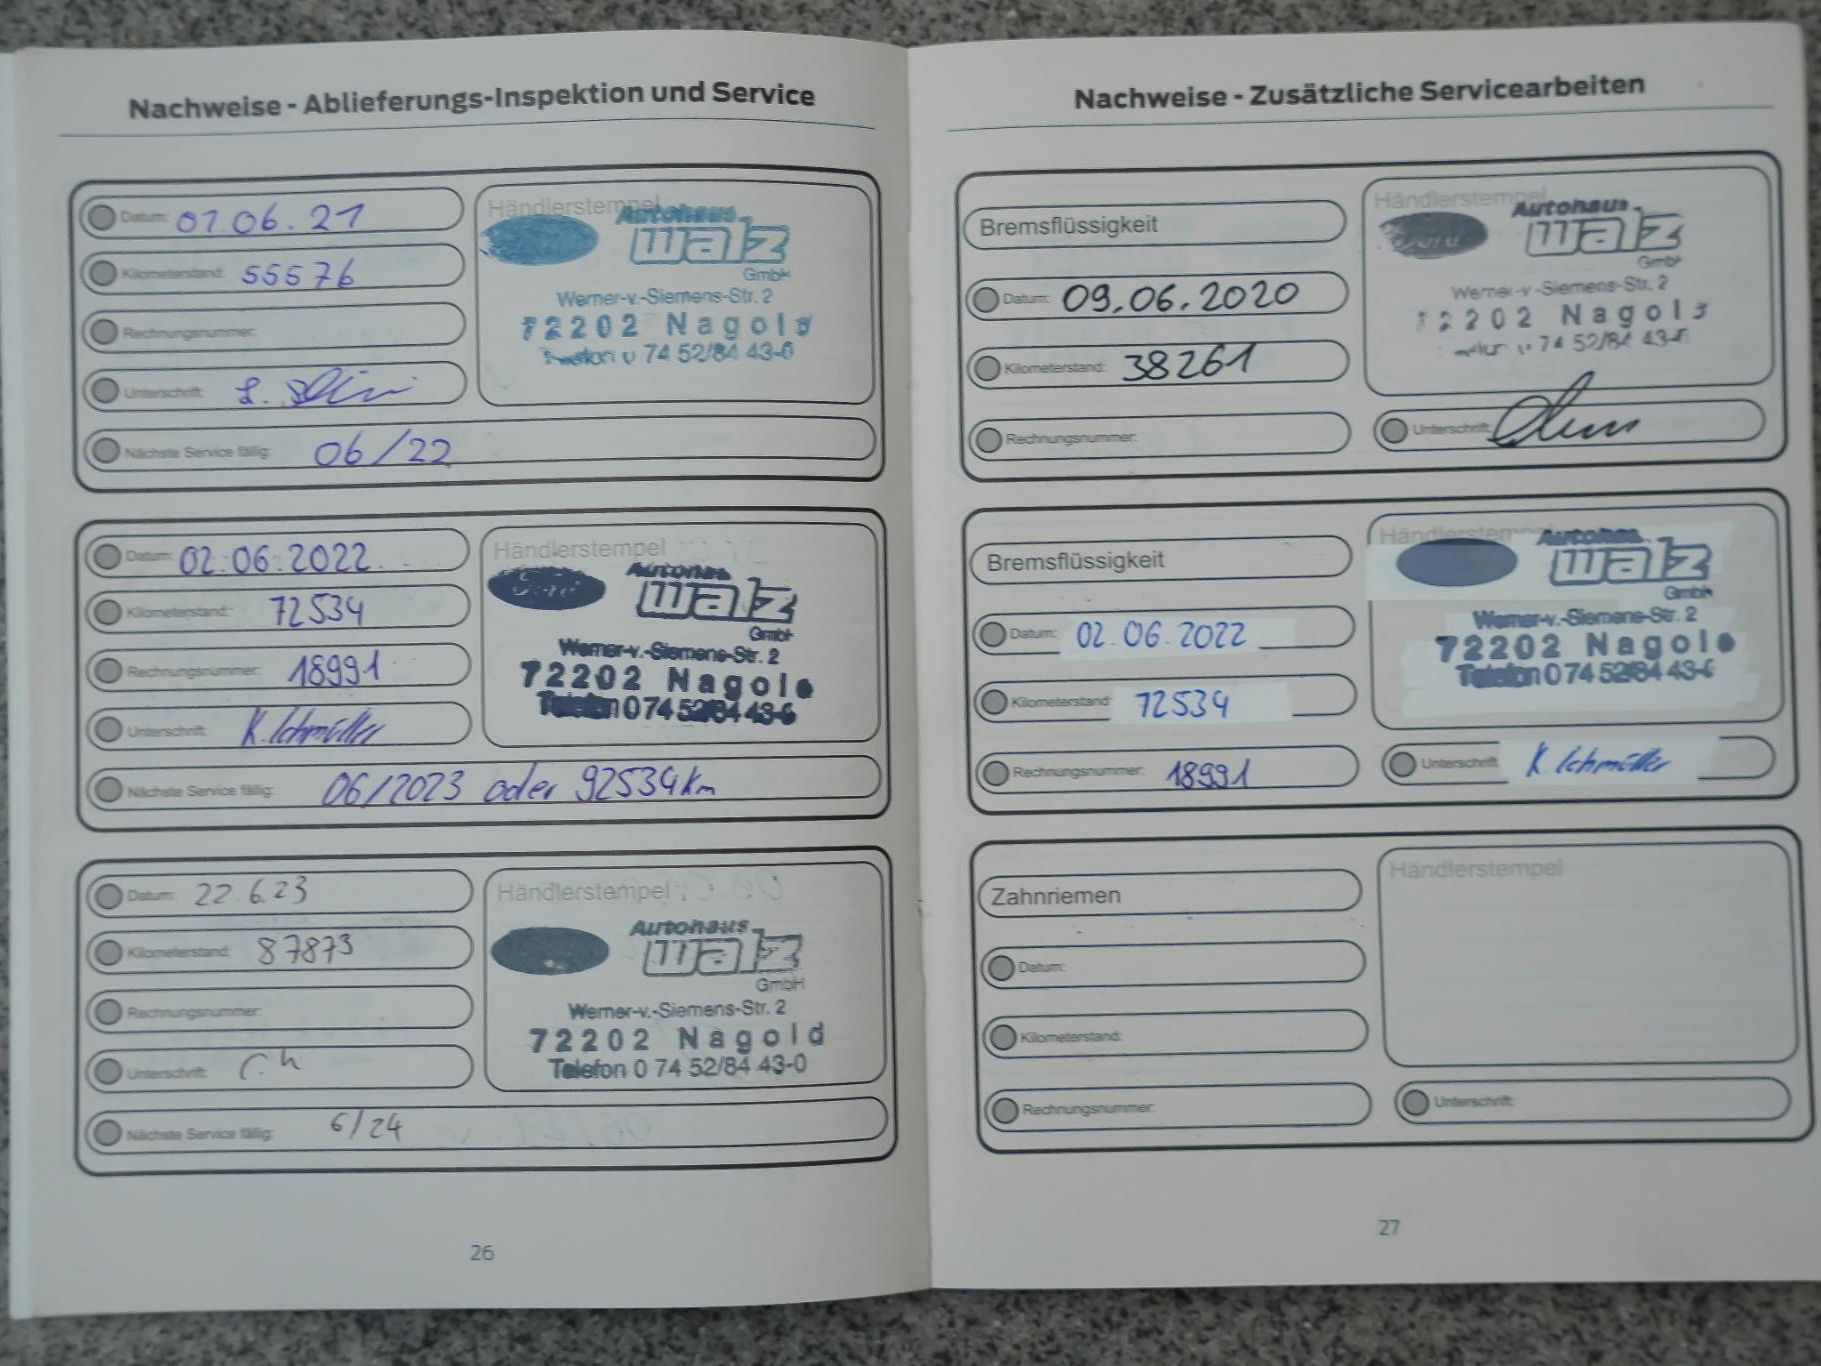 Nachweise - Ablieferungs-Inspektion und Service
Datum: 01.06.21
Kilometerstand: 55576
Rechnungsnummer:
Unterschrift:
Nächste Service fällig: 06/22
Händlerstempel
Autohaus
walz
GmbH
Werner-v.-Siemens-Str. 2
72202 Nagold
74 52/84 43-0
Datum: 02.06.2022
Kilometerstand: 72534
Rechnungsnummer: 18991
Unterschrift: K. Schmüller
Nächste Service fällig: 06/2023 oder 92534 km
Händlerstempel
Autohaus
walz
GmbH
Werner-v.-Siemens-Str. 2
72202 Nagold
Telefon 0 74 52/84 43-0
Datum: 22.6.23
Kilometerstand: 87873
Rechnungsnummer:
Unterschrift:
Nächste Service fällig: 6/24
Händlerstempel
Autohaus
walz
GmbH
Werner-v.-Siemens-Str. 2
72202 Nagold
Telefon 0 74 52/84 43-0
26
Nachweise - Zusätzliche Servicearbeiten
Bremsflüssigkeit
Datum: 09.06.2020
Kilometerstand: 38261
Rechnungsnummer:
Händlerstempel
Autohaus
walz
GmbH
Werner-v.-Siemens-Str. 2
72202 Nagold
74 52/84 43-0
Unterschrift:
Bremsflüssigkeit
Datum: 02.06.2022
Kilometerstand: 72534
Rechnungsnummer: 18991
Händlerstempel
Autohaus
walz
GmbH
Werner-v.-Siemens-Str. 2
72202 Nagold
Telefon 0 74 52/84 43-0
Unterschrift: K. Schmüller
Zahnriemen
Datum:
Kilometerstand:
Rechnungsnummer:
Händlerstempel
Unterschrift:
27